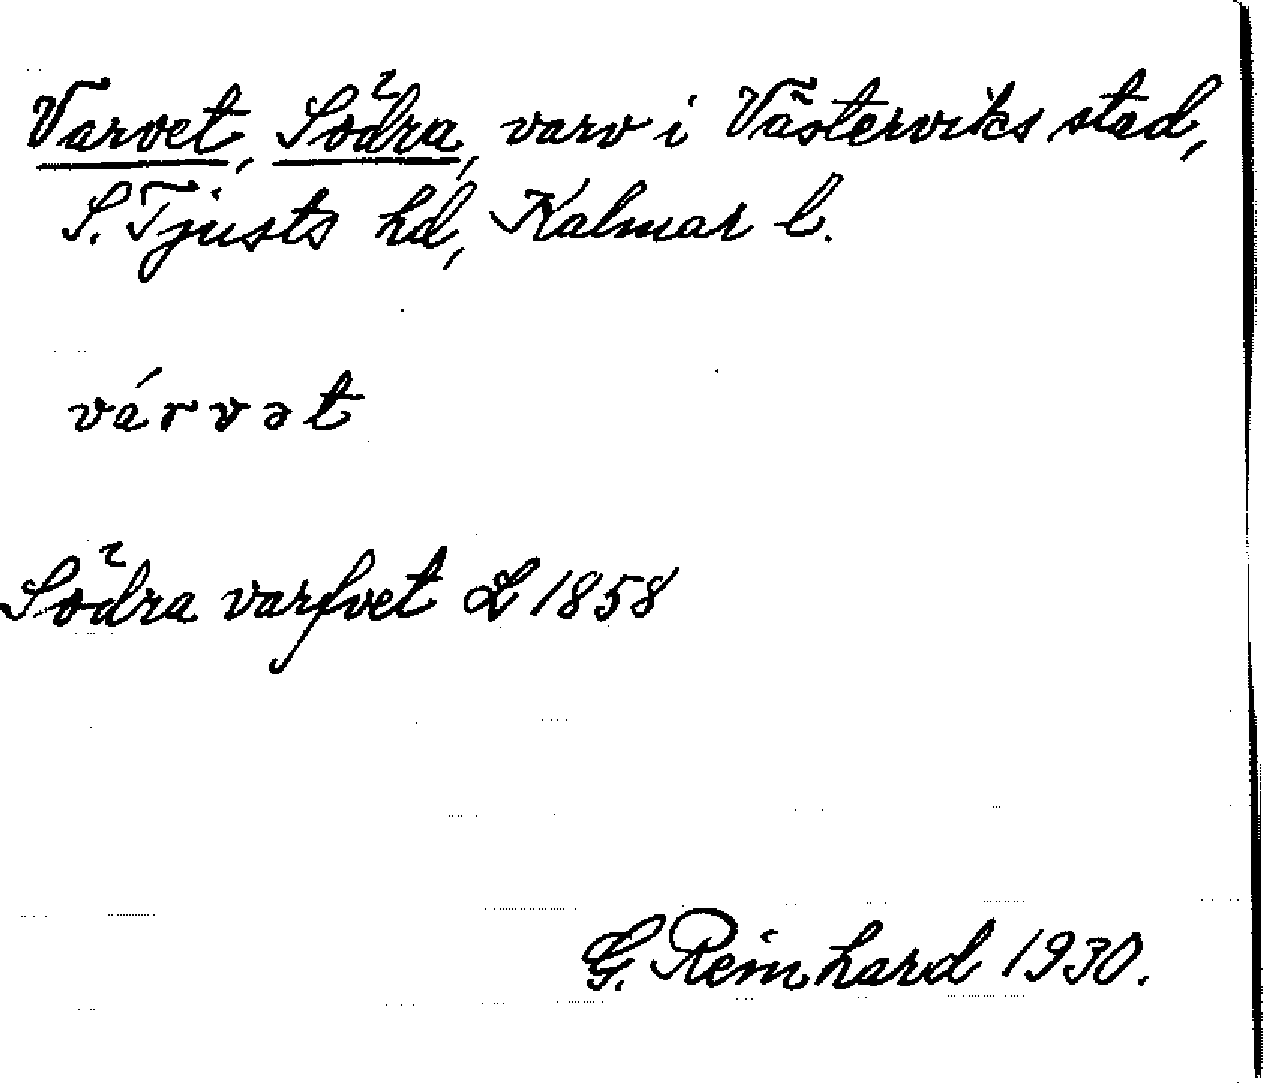 Varvet, Södra, varv i Västerviks stad,
S. Tjusts hd, Kalmar l.
várvət
Södra varfvet L 1858
G. Reinhard 1930.